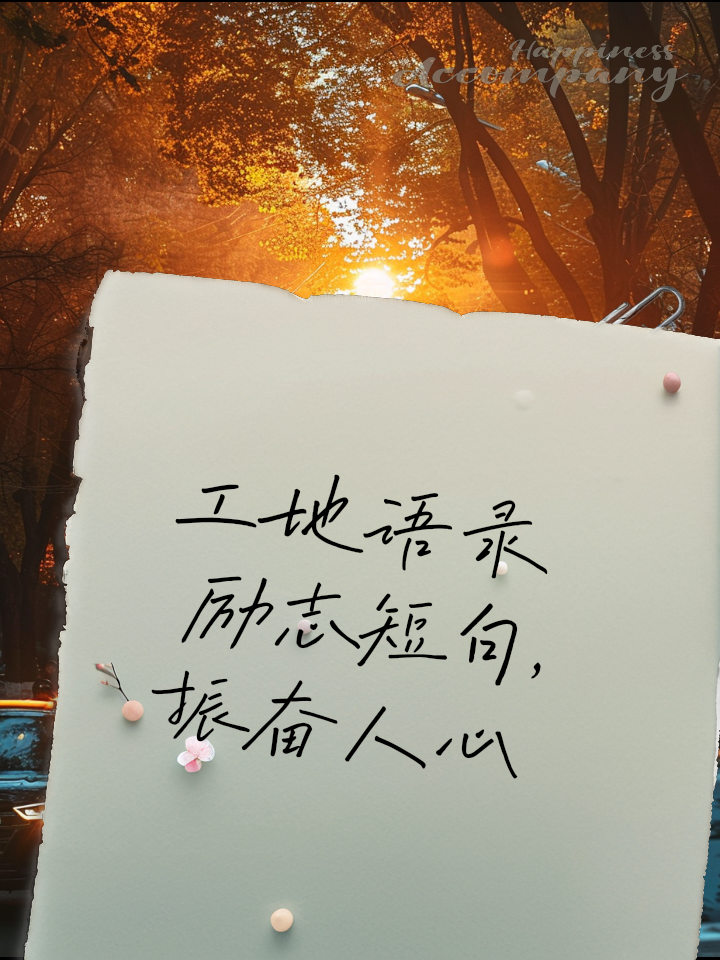 Happiness
Accompany
工地语录
励志短句,
振奋人心